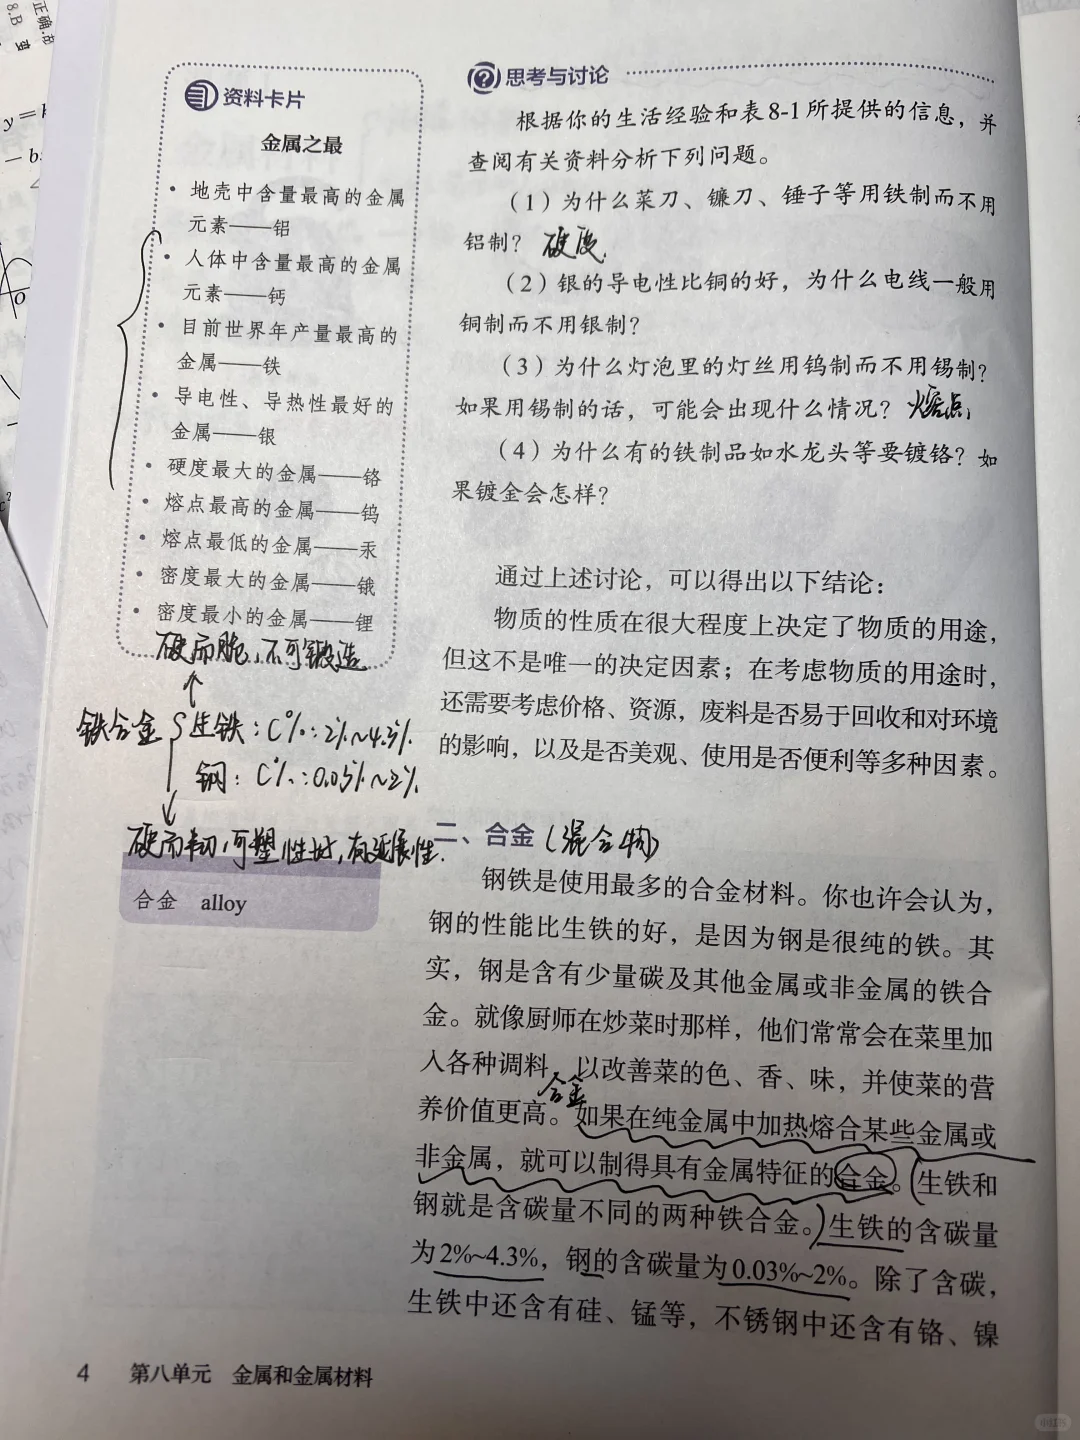 正确.故
8.B
y=k
资料卡片
金属之最
• 地壳中含量最高的金属
元素——铝
• 人体中含量最高的金属
元素——钙
• 目前世界年产量最高的
金属——铁
• 导电性、导热性最好的
金属——银
• 硬度最大的金属——铬
• 熔点最高的金属——钨
• 熔点最低的金属——汞
• 密度最大的金属——锇
• 密度最小的金属——锂
硬而脆,不可锻造
铁合金 生铁:C%:2%~4.3%
钢:C%:0.03%~2%
硬而韧,可塑性好,有延展性.
合金 alloy
思考与讨论
根据你的生活经验和表8-1所提供的信息,并
查阅有关资料分析下列问题。
(1)为什么菜刀、镰刀、锤子等用铁制而不用
铝制? 硬度
(2)银的导电性比铜的好,为什么电线一般用
铜制而不用银制?
(3)为什么灯泡里的灯丝用钨制而不用锡制?
如果用锡制的话,可能会出现什么情况? 熔点
(4)为什么有的铁制品如水龙头等要镀铬?如
果镀金会怎样?
通过上述讨论,可以得出以下结论:
物质的性质在很大程度上决定了物质的用途,
但这不是唯一的决定因素;在考虑物质的用途时,
还需要考虑价格、资源,废料是否易于回收和对环境
的影响,以及是否美观、使用是否便利等多种因素。
二、合金(混合物)
钢铁是使用最多的合金材料。你也许会认为,
钢的性能比生铁的好,是因为钢是很纯的铁。其
实,钢是含有少量碳及其他金属或非金属的铁合
金。就像厨师在炒菜时那样,他们常常会在菜里加
入各种调料,以改善菜的色、香、味,并使菜的营
合金
养价值更高。如果在纯金属中加热熔合某些金属或
非金属,就可以制得具有金属特征的合金。(生铁和
钢就是含碳量不同的两种铁合金。)生铁的含碳量
为2%~4.3%,钢的含碳量为0.03%~2%。除了含碳,
生铁中还含有硅、锰等,不锈钢中还含有铬、镍
4 第八单元 金属和金属材料
小红书